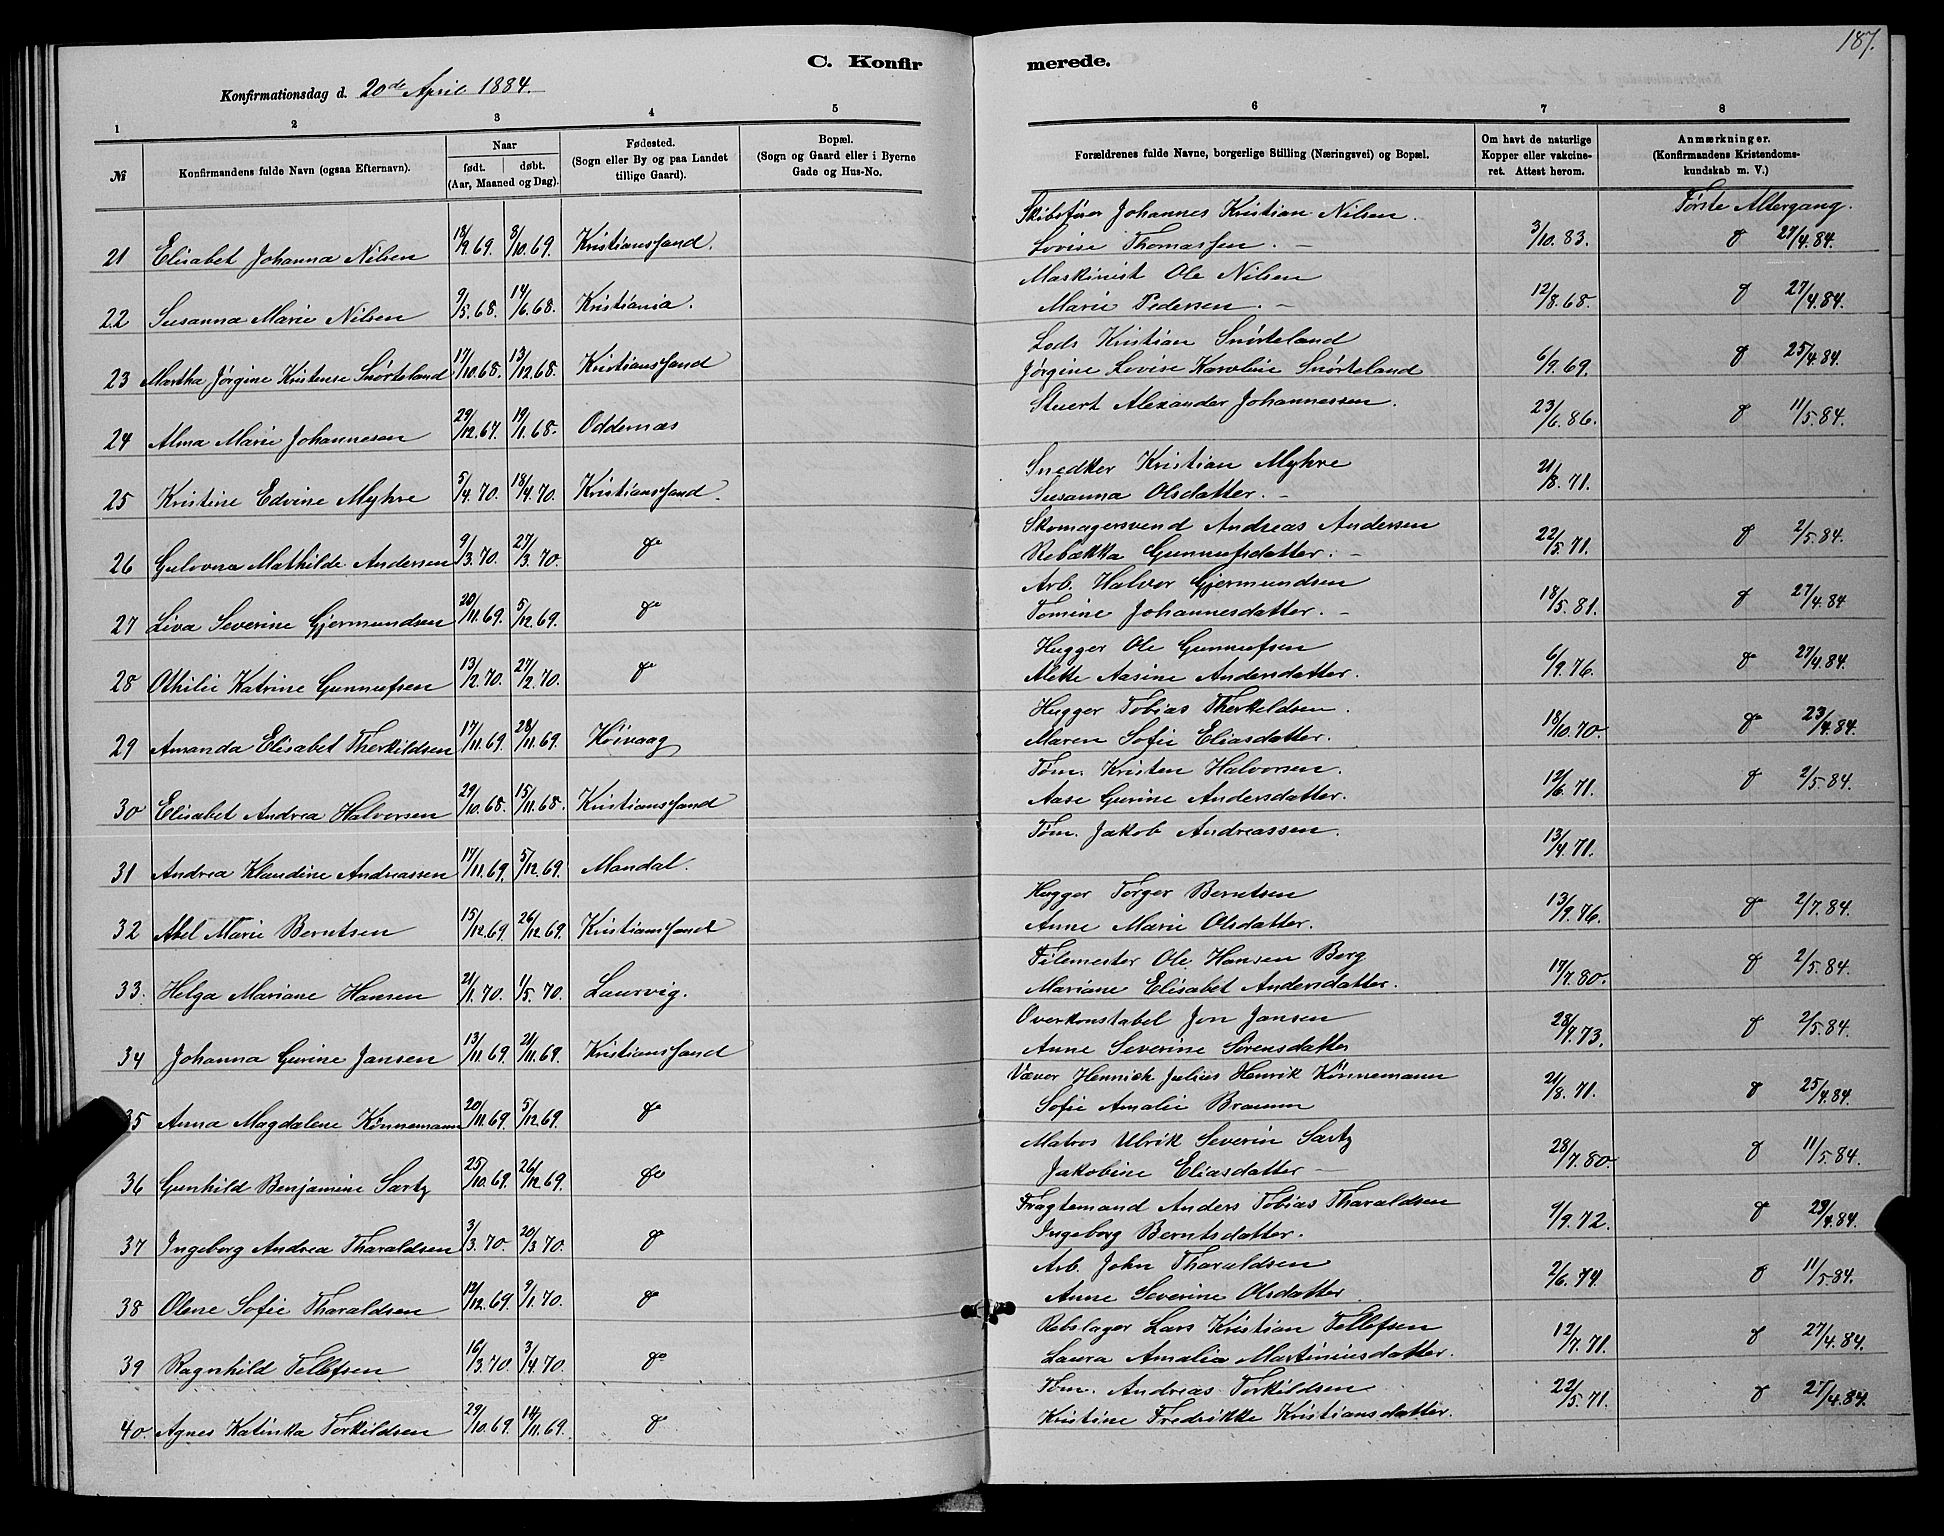 187.
C. Konfirmerede.
Konfirmationsdag d. 20de April 1884.
1 2 3 4 5 6 7 8
№ Konfirmandens fulde Navn (ogsaa Efternavn). Naar født. døbt. (Aar, Maaned og Dag). Fødested. (Sogn eller By og paa Landet tillige Gaard). Bopæl. (Sogn og Gaard eller i Byerne Gade og Hus-No. Forældrenes fulde Navne, borgerlige Stilling (Næringsvei) og Bopæl. Om havt de naturlige Kopper eller vakcineret. Attest herom. Anmærkninger. (Konfirmandens Kristendomskundskab m. V.)
Første Altergang.
Skibsfører Johannes Kristian Nilsen.
21 Elisabet Johanna Nilsen 18/9.69. 8/10.69. Kristianssand. Lovise Thomassen. – 3/10.83. do 27/4.84.
Maskinist Ole Nilsen
22 Susanna Marie Nilsen 9/5.68. 14/6.68. Kristiania. Marie Pedersen. – 12/8.68. do 27/4.84.
Lods Kristian Snørteland
23 Martha Jørgine Kristense Snørteland 17/10.68. 13/12.68. Kristianssand Jørgine Lovise Karoline Snørteland 6/9.69. do 25/4.84.
Stuert Alexander Johannessen.
24 Alma Marie Johannesen 29/12.67. 19/1.68. Oddernæs 23/6.86. do 11/5.84.
Snedker Kristian Myhre
25 Kristine Edvine Myhre 5/4.70. 18/4.70. Kristianssand. Susanna Olsdatter. – 21/8.71.
Skomagersvend Andreas Andersen
26 Gulovna Mathilde Andersen 9/3.70. 27/3.70. do Rebækka Gunnufsdatter. – 22/5.71. do 2/5.84.
Arb. Halvor Gjermundsen
27 Liva Severine Gjermundsen 20/11.69. 5/12.69. do Tomine Johannesdatter. – 18/5.81. do 27/4.84
Hugger Ole Gunnufsen
28 Othilie Katrine Gunnufsen 13/2.70. 27/2.70. do Mette Aasine Andersdatter. 6/9.76. do 27/4.84.
Hugger Tobias Therkeldsen.
29 Amanda Elisabet Therkildsen 17/11.69. 28/11.69. Høivaag Maren Sofie Eliasdatter. 18/10.70. do 23/4.84.
Tøm. Kristen Halvorsen.
30 Elisabet Andrea Halvorsen 29/10.68. 15/11.68. Kristianssand Aase Gurine Andersdatter. 12/6.71. do 2/5.84.
Tøm. Jakob Andreassen.
31 Andrea Klaudine Andreassen 17/11.69. 5/12.69. Mandal. 13/4.71.
Hugger Torger Berntsen
32 Abel Marie Berntsen 15/12.69. 26/12.69. Kristianssand Anne Marie Olsdatter. 13/9.76. do 2/7.84.
Filemester Ole Hansen Berg
33. Helga Mariane Hansen 21/1.70. 1/5.70. Laurvig. Mariane Elisabet Andersdatter. 17/7.80. do 2/5.84.
Overkonstabel Jon Jansen
34 Johanna Gurine Jansen 13/11.69. 21/11.69. Kristianssand Anne Severine Sørensdatter 28/7.73. do 2/5.84.
Væver Hennick Julius Henrik Kønnemann
35 Anna Magdalene Kønnemann 20/11.69. 5/12.69. do Sofie Amalie Braunn 21/8.71. do 25/4.84.
Matros Ulrik Severin Sartz
36 Gunhild Benjamine Sartz 25/10.69. 26/12.69. do Jakobine Eliasdatter – 28/7.80. do 11/5.84.
Fragtemand Anders Tobias Tharaldsen
37 Ingeborg Andrea Tharaldsen 3/3.70. 20/3.70. do Ingeborg Berntsdatter. 9/9.72. do 29/4.84.
Arb. John Tharaldsen
38 Olene Sofie Tharaldsen 12/12.69. 9/1.70. do Anne Severine Olsdatter 2/6.74. do 11/5.84.
Rebslager Lars Kristian Tellefsen
39 Ragnhild Tellefsen 16/3.70. 3/4.70. do Laura Amalia Martiniusdatter. 12/7.71. do 27/4.84.
Tøm. Andreas Torkildsen
40. Agnes Katinka Torkildsen 29/10.69. 14/11.69. do Kristine Fredrikke Kristiansdatter. 22/5.71. do 27/4.84.